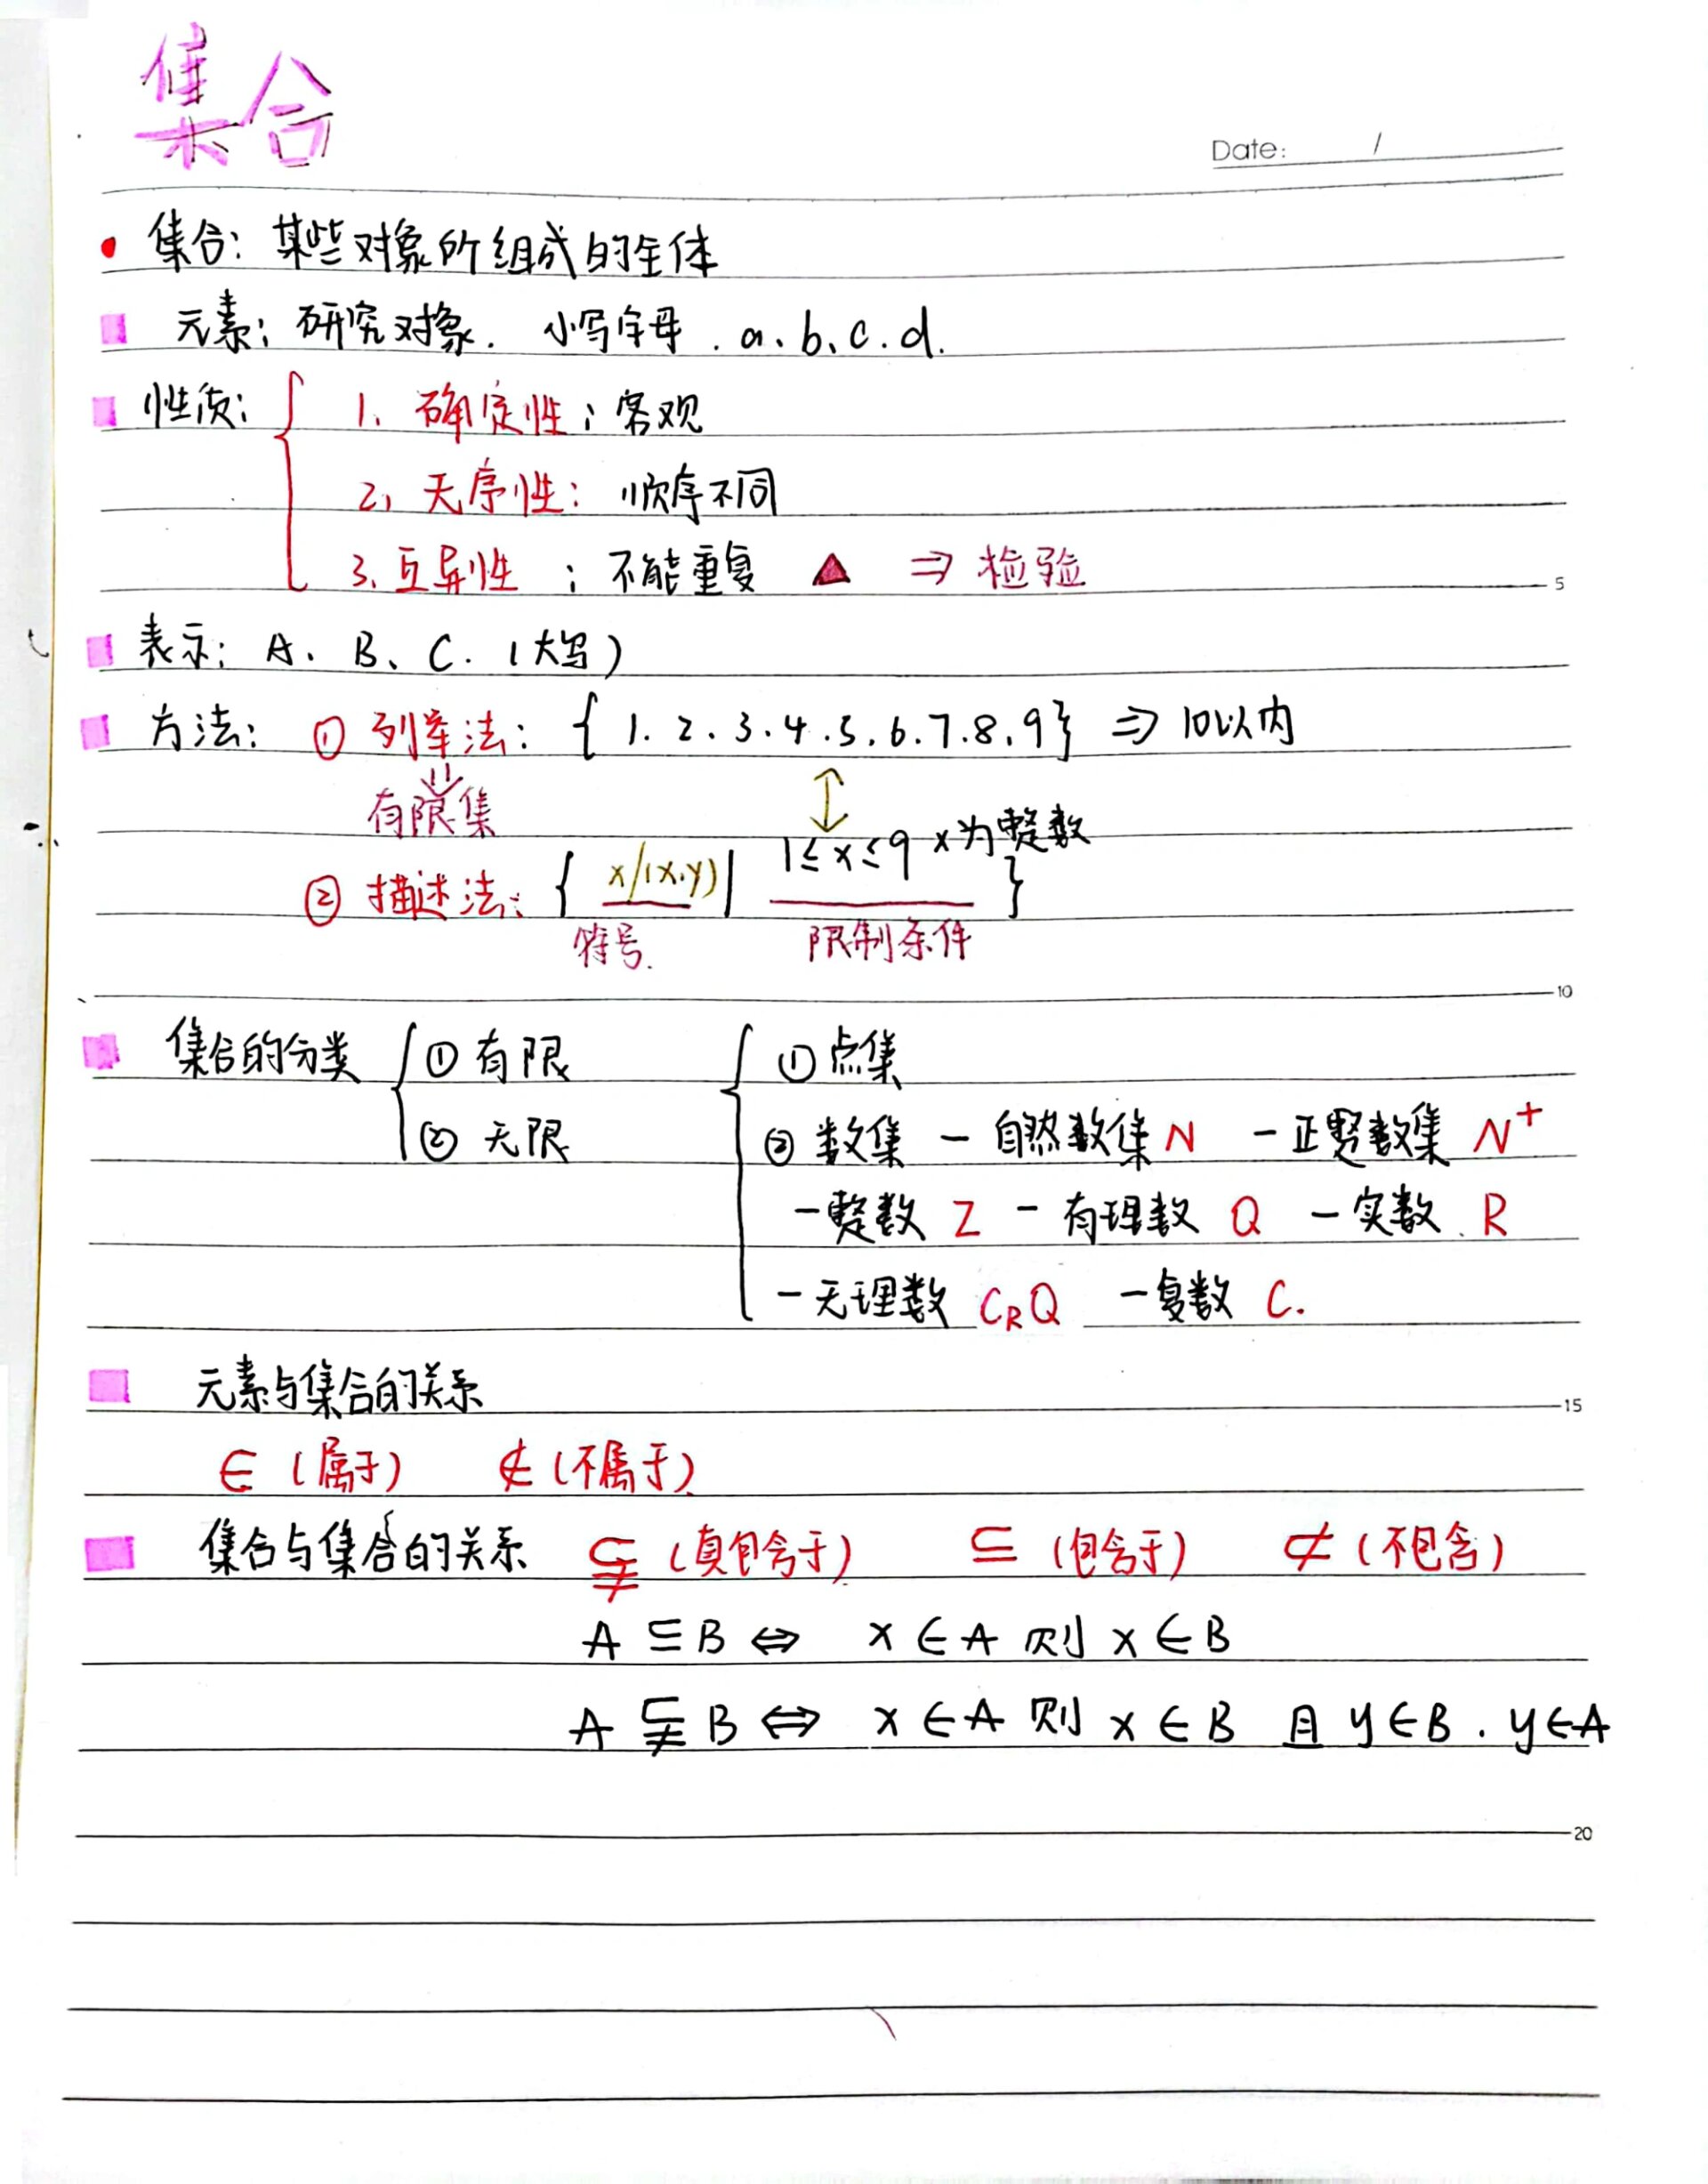 集合
Date: /
• 集合：某些对象所组成的全体
元素：研究对象. 小写字母. a、b、c.d.
性质：{ 1、确定性：客观
2、无序性：顺序不同
3、互异性：不能重复 ▲ ⇒ 检验
5
表示：A、B、C.（大写）
方法：① 列举法：{ 1.2.3.4.5.6.7.8.9} ⇒ 10以内
⇓ ↕
有限集
1≤x≤9 x为整数
② 描述法：{ x/(x,y) | }
符号. 限制条件
10
集合的分类 { ① 有限 { ① 点集
② 无限 ② 数集 － 自然数集 N － 正整数集 N⁺
－整数 Z － 有理数 Q － 实数. R
－无理数 C_RQ － 复数 C.
元素与集合的关系
15
∈（属于） ∉（不属于）
集合与集合的关系 ⫋（真包含于） ⊆（包含于） ⊄（不包含）
A ⊆ B ⇔ x∈A 则 x∈B
A ⫋ B ⇔ x∈A 则 x∈B 且 y∈B. y∈A
20